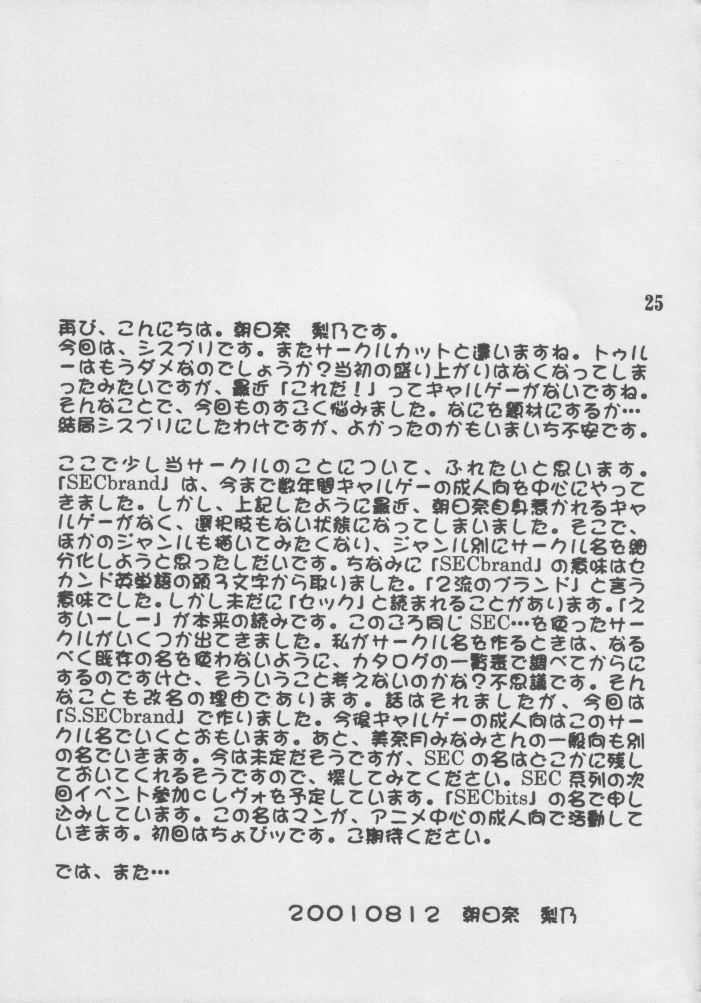 25
再び、こんにちは。朝日奈　梨乃です。
今回は、シスプリです。またサークルカットと違いますね。トゥル
ーはもうダメなのでしょうか？当初の盛り上がりはなくなってしま
ったみたいですが、最近「これだ！」ってギャルゲーがないですね。
そんなことで、今回ものすごく悩みました。なにを題材にするか…
結局シスプリにしたわけですが、よかったのかもいまいち不安です。
ここで少し当サークルのことについて、ふれたいと思います。
「SECbrand」は、今まで数年間ギャルゲーの成人向を中心にやって
きました。しかし、上記したように最近、朝日奈自身惹かれるギャ
ルゲーがなく、選択肢もない状態になってしまいました。そこで、
ほかのジャンルも描いてみたくなり、ジャンル別にサークル名を細
分化しようと思ったしだいです。ちなみに「SECbrand」の意味はセ
カンド英単語の頭３文字から取りました。「２流のブランド」と言う
意味でした。しかし未だに「セック」と読まれることがあります。「え
すいーしー」が本来の読みです。このごろ同じSEC…を使ったサー
クルがいくつか出てきました。私がサークル名を作るときは、なる
べく既存の名を使わないように、カタログの一覧表で調べてからに
するのですけど、そういうこと考えないのかな？不思議です。そん
なことも改名の理由であります。話はそれましたが、今回は
「S.SECbrand」で作りました。今後ギャルゲーの成人向はこのサー
クル名でいくとおもいます。あと、美奈月みなみさんの一般向も別
の名でいきます。今は未定だそうですが、SECの名はどこかに残し
ておいてくれるそうですので、探してみてください。SEC系列の次
回イベント参加Ｃレヴォを予定しています。「SECbits」の名で申し
込みしています。この名はマンガ、アニメ中心の成人向で活動して
いきます。初回はちょびッです。ご期待ください。
では、また…
２００１０８１２　朝日奈　梨乃